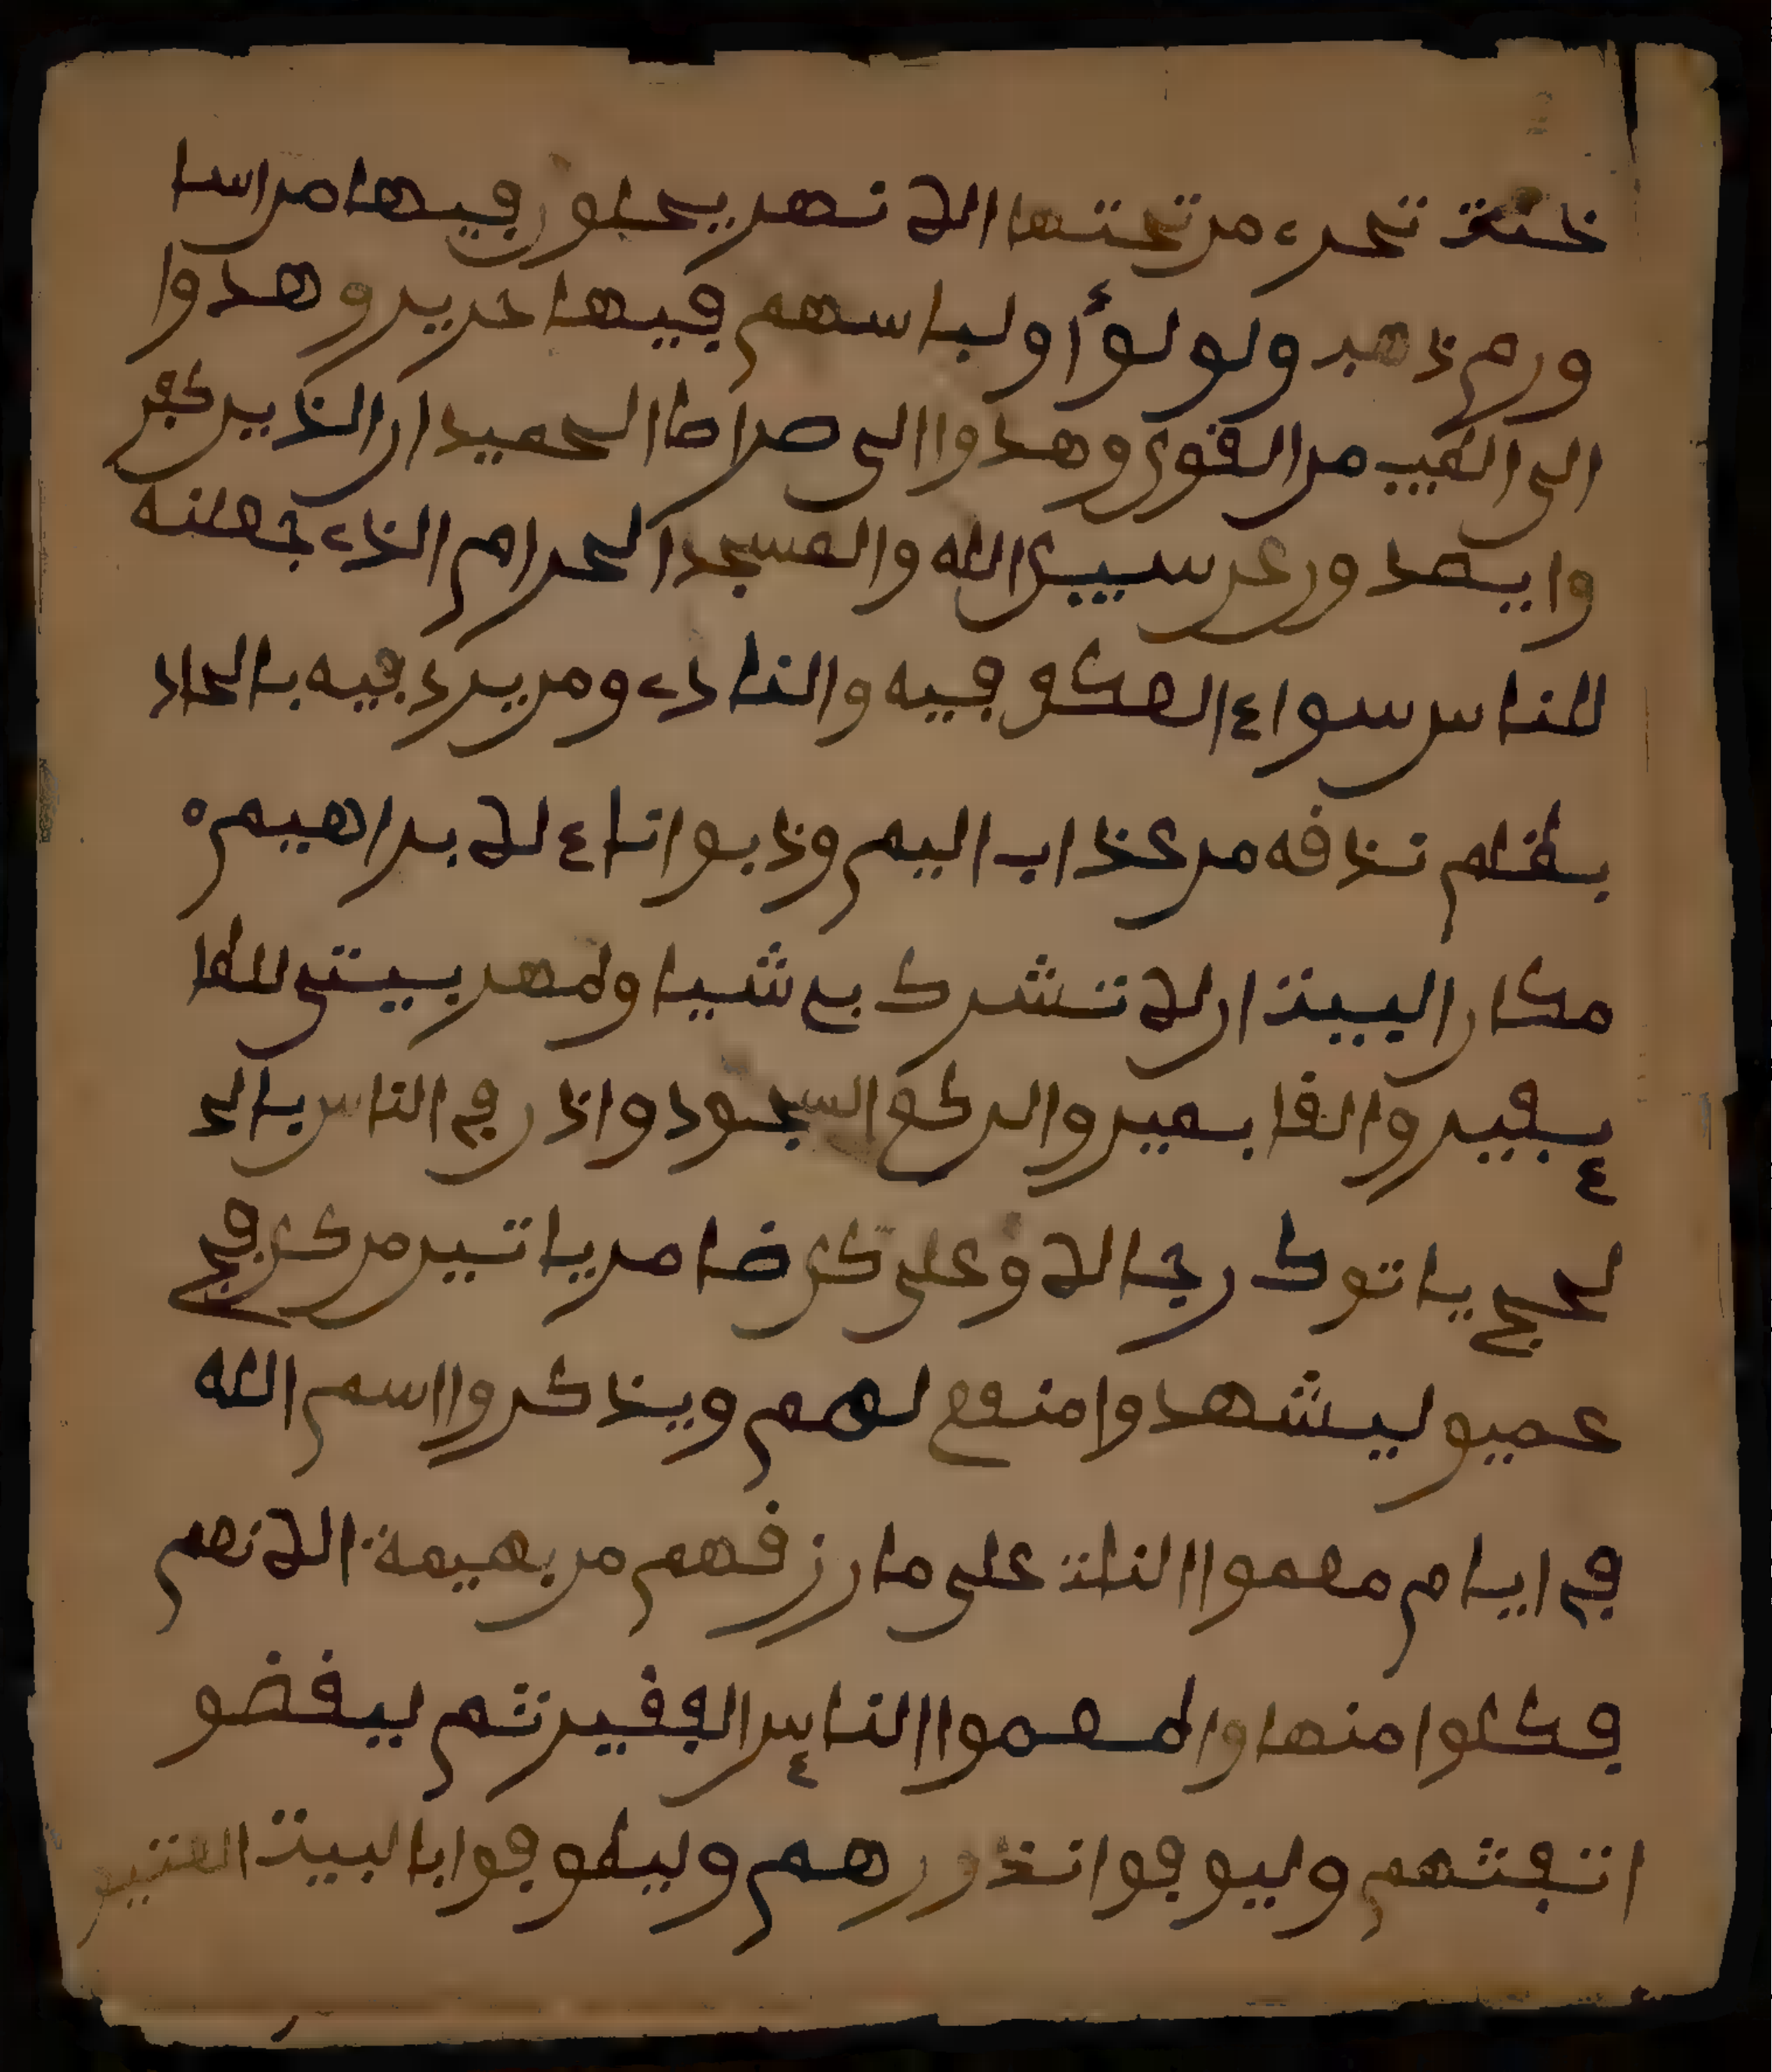 جنت تجرے من تحتها الانهر يحلون فيها من اسا
ورم ذهب ولو لؤا ولباسهم فيها حرير وهدوا
الى الطيب من القول وهدوا الى صراط الحميد ان الذين كفر
وا يصدون عن سبيل الله والمسجد الحرام الذے جعلنه
للناس سواء العكف فيه والبادے ومن يرد فيه بالحاد
بظلم نذفه من عذاب اليم وذ بوانا ء لابراهيم
مكان البيت ان لا تشرك بے شيا وطهر بيتى للطا
يفين والقايمين والركع السجود واذن في الناس باله
لحج ياتوك رجالا وعلى كل ضامر ياتين من كل فج
عميق ليشهدوا منفع لهم ويذكروا اسم الله
في ايام معموا التلت على ما رزقهم من بهيمة الانعم
فكلوا منها واطعموا الناىس الفقير ثم ليقضو
ا تفثهم وليوفوا نذورهم وليطوفوا بالبيت العتيق